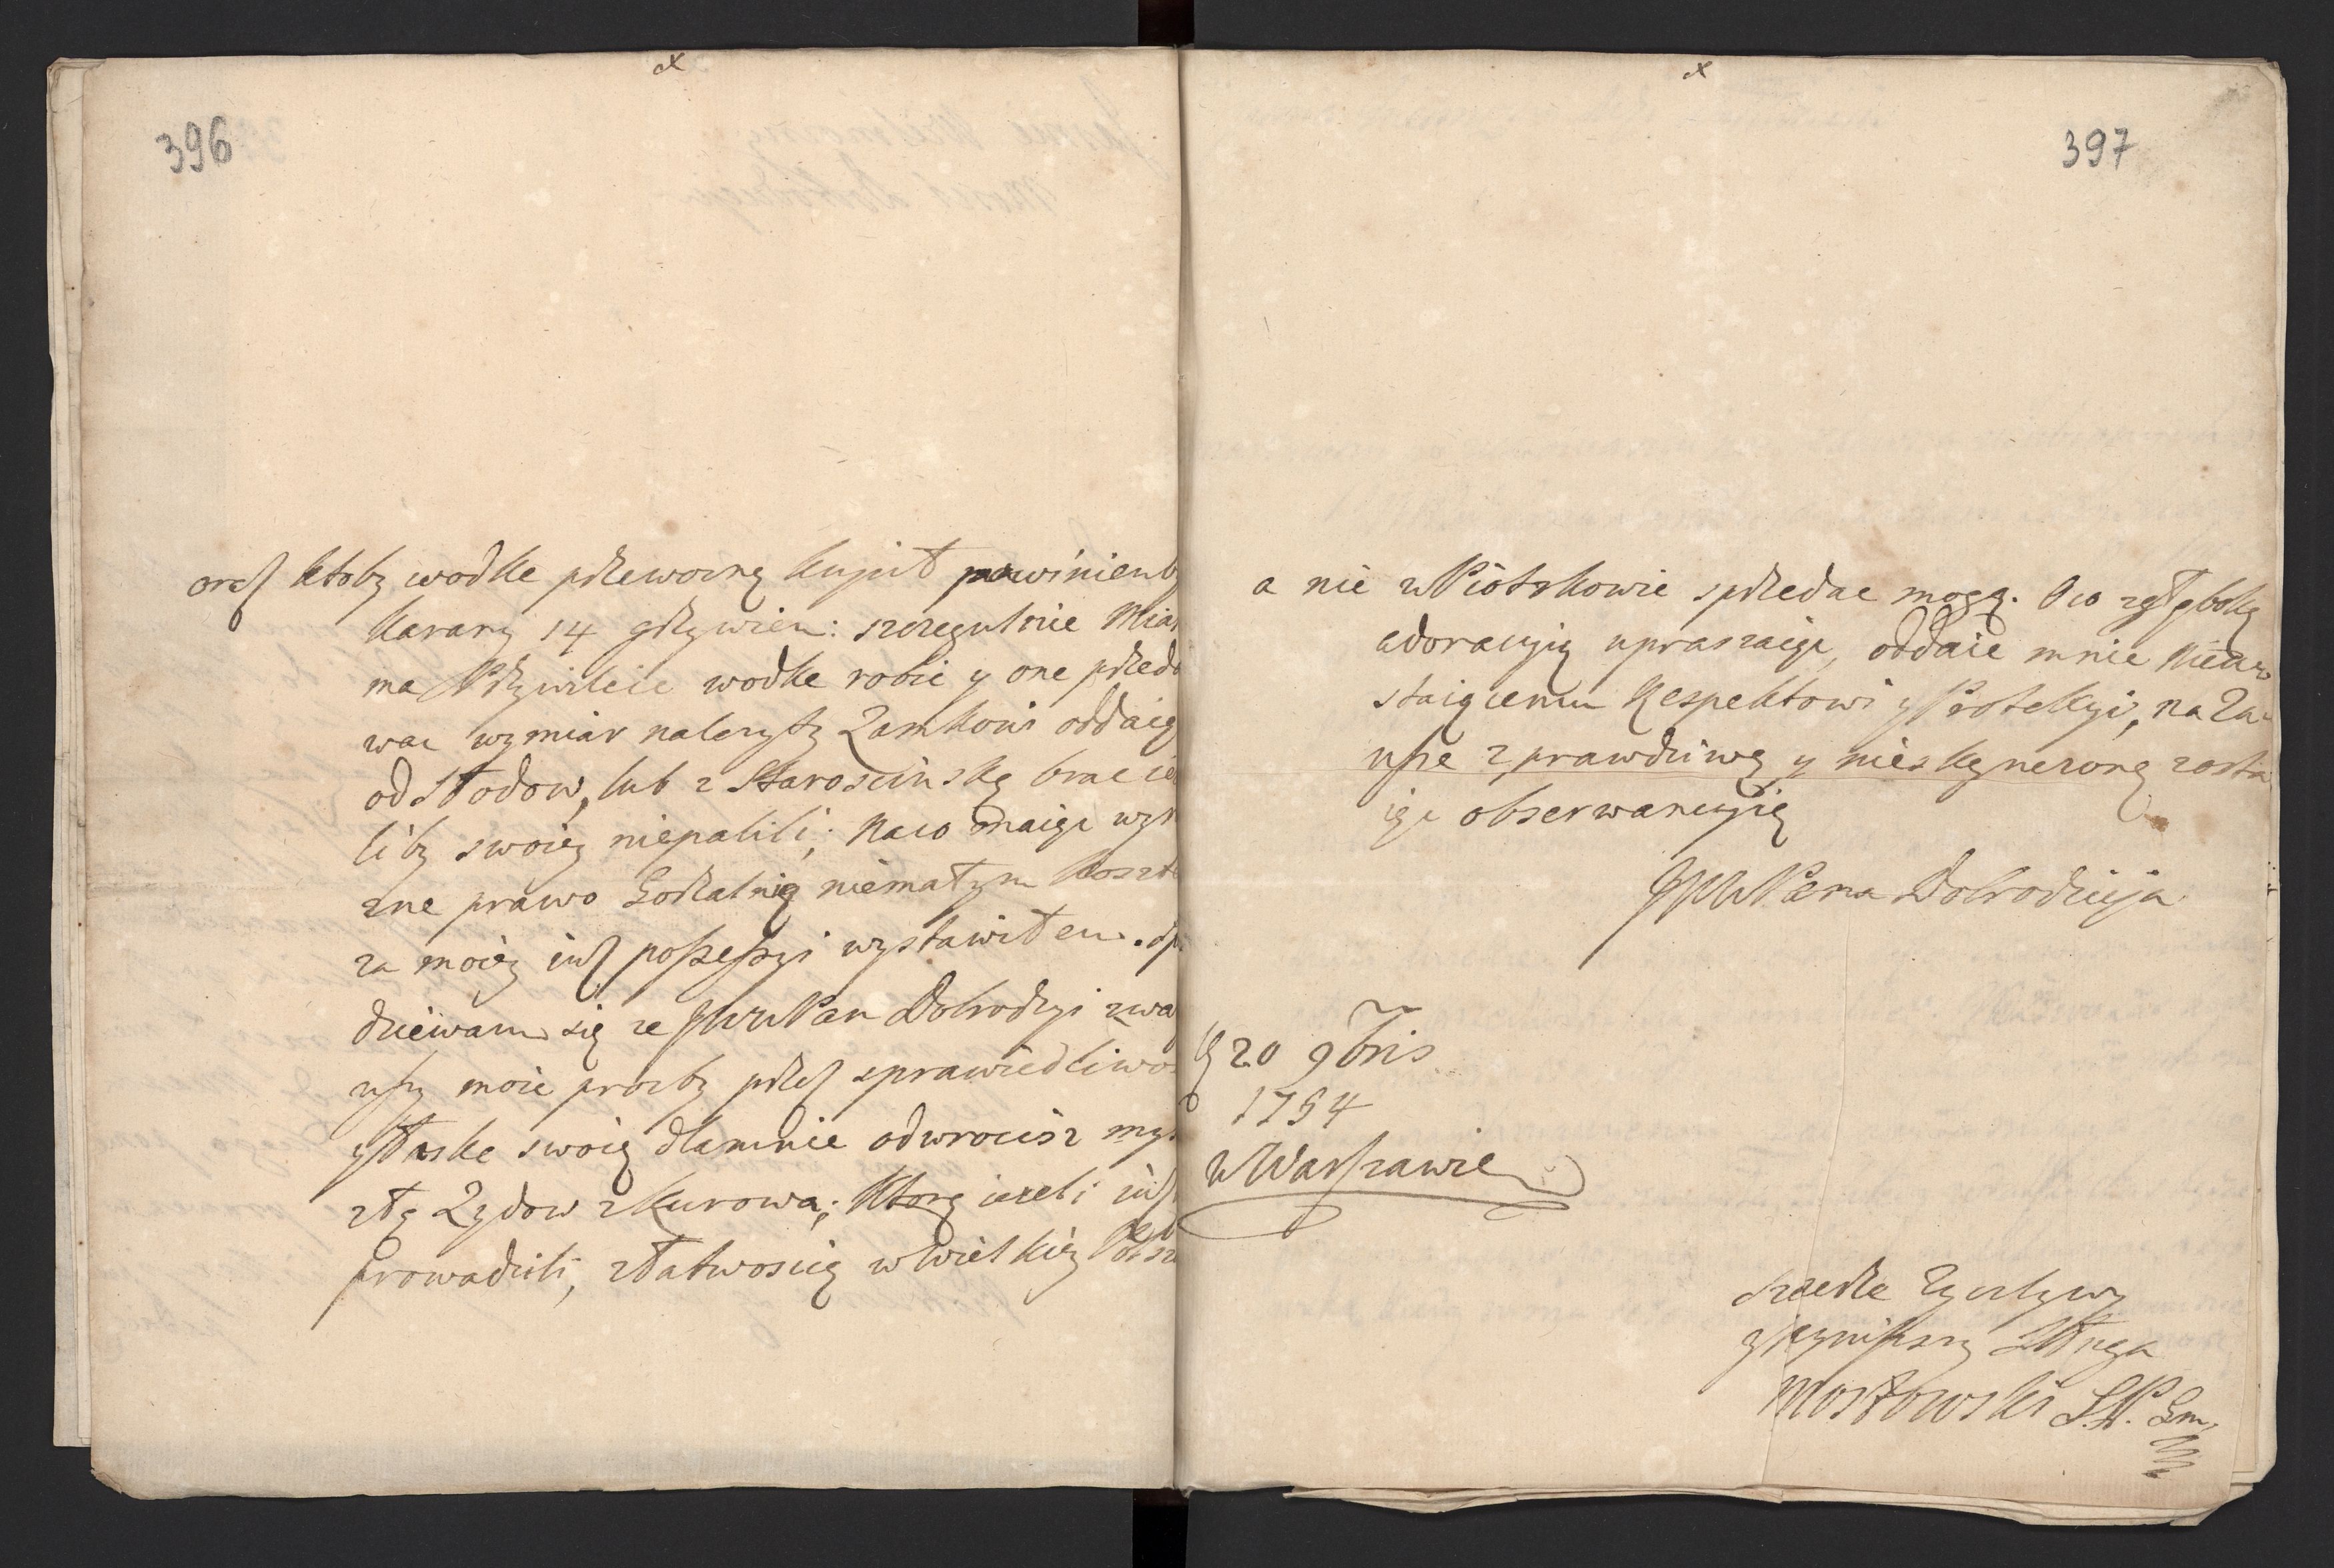 x
396
oraſ ktoby wodke przewozną kupił powinien by
karany 14 grzywien: szczegulnie Mias
ma Przywileie wodke robic y one przeda
wac wymiar nalezyty Zamkowi oddaią
od Słodow, lub z Staroscinską brac ie
liby swoiey niepalili; naco maiąc wyr
zne prawo Gorzalnią niemałym koszte
za moiey iuſ poſſeſſyi wystawiłem. Sp
dziewam się ze JWWPan Dobrodzyi zwa
uſzy moie prozby przeſ sprawiedliwos
y łaske swoię dlamnie odwrocisz mys
złą Zydow z Kurowa; ktorą iezeli iuſ
prowadzili, złatwoscią w Wielkiey Polsz
x
397
a nie w Piotrkowie sprzedac mogą. O co zgłęboką
adoracyią upraszaiąc, oddaie mnie nieu
staiącemu Respektowi y Protekcyi, na Za
uſze z prawdziwą y nieskączoną zosta
iąc obserwancyią
JWWPana Dobrodzieja
20 9bris
1754
w Warſzawie
Szczerze Zyczlywy
y naynizſzy Sługa
Mostowski